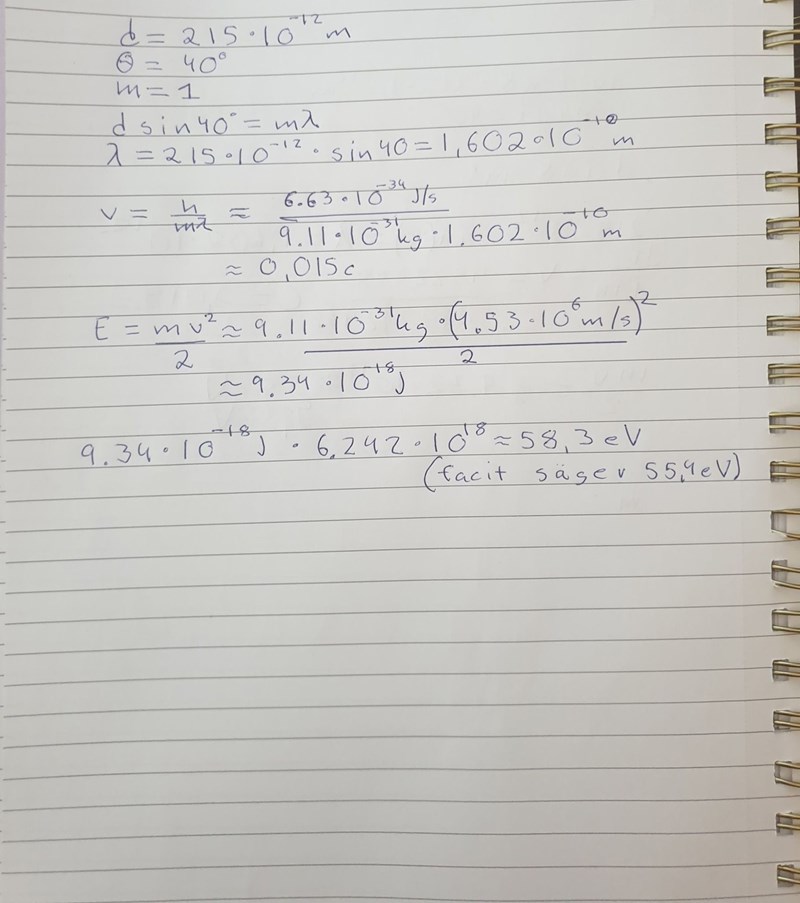 d = 215·10⁻¹² m
θ = 40°
m = 1
d sin40° = mλ
λ = 215·10⁻¹² · sin40 = 1,602·10⁻¹⁰ m
v = h/mλ ≈ 6.63·10⁻³⁴ J/s / 9.11·10⁻³¹ kg · 1.602·10⁻¹⁰ m
≈ 0,015c
E = mv²/2 ≈ 9.11·10⁻³¹ kg · (4.53·10⁶ m/s)²/2
≈ 9.34·10⁻¹⁸ J
9.34·10⁻¹⁸ J · 6.242·10¹⁸ ≈ 58,3 eV
(facit säger 55,4 eV)